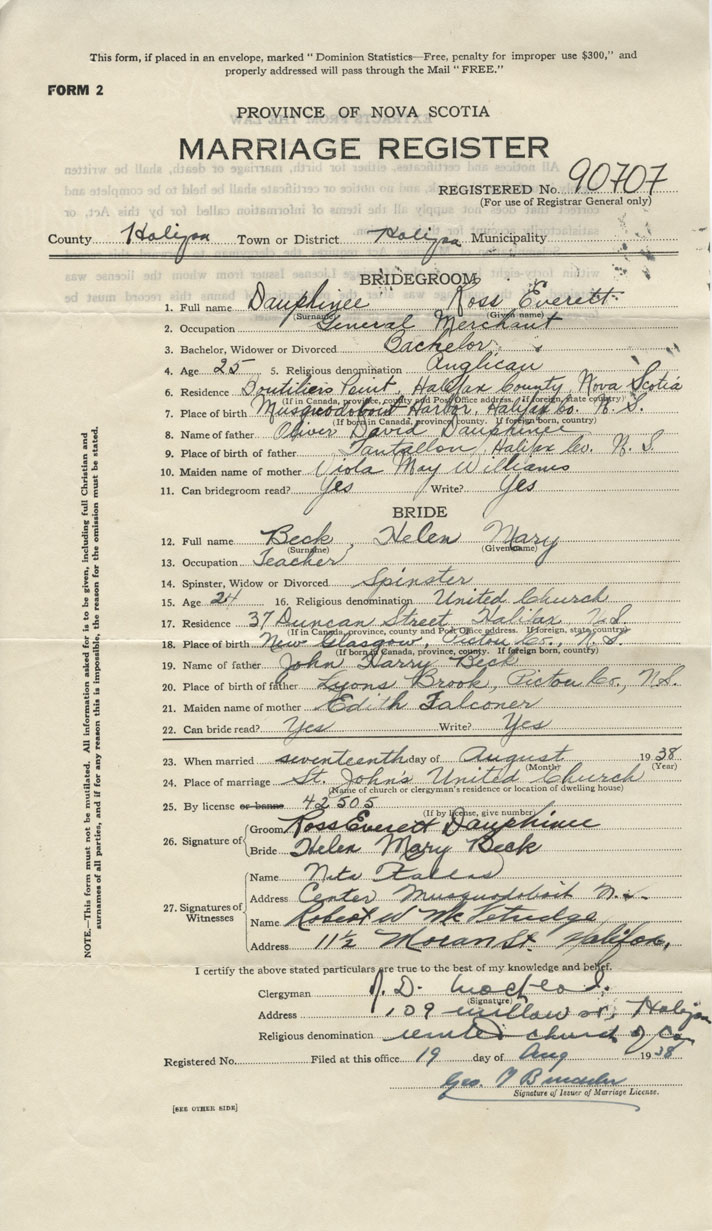 This form, if placed in an envelope, marked "Dominion Statistics—Free, penalty for improper use $300," and
properly addressed will pass through the Mail "FREE."
FORM 2
PROVINCE OF NOVA SCOTIA
MARRIAGE REGISTER
REGISTERED No. 90707
(For use of Registrar General only)
County Halifax Town or District Halifax Municipality
BRIDEGROOM
1. Full name Dauphinee Ross Everett
(Surname) (Given name)
2. Occupation General Merchant
3. Bachelor, Widower or Divorced Bachelor
4. Age 25 5. Religious denomination Anglican
6. Residence Boutiliers Point, Halifax County, Nova Scotia
(If in Canada, province, county and Post Office address. If foreign, state country)
7. Place of birth Musquodoboit Harbor, Halifax Co. N. S.
(If born in Canada, province, county. If foreign born, country)
8. Name of father Oliver David Dauphinee
9. Place of birth of father Tantallon, Halifax Co. N. S.
10. Maiden name of mother Viola May Williams
11. Can bridegroom read? Yes Write? Yes
BRIDE
12. Full name Beck, Helen Mary
(Surname) (Given name)
13. Occupation Teacher
14. Spinster, Widow or Divorced Spinster
15. Age 24 16. Religious denomination United Church
17. Residence 37 Duncan Street Halifax N.S.
(If in Canada, province, county and Post Office address. If foreign, state country)
18. Place of birth New Glasgow, Pictou Co., N. S.
(If born in Canada, province, county. If foreign born, country)
19. Name of father John Harry Beck
20. Place of birth of father Lyons Brook, Pictou Co., N.S.
21. Maiden name of mother Edith Falconer
22. Can bride read? Yes Write? Yes
23. When married seventeenth day of August 1938
(Month) (Year)
24. Place of marriage St. John's United Church
(Name of church or clergyman's residence or location of dwelling house)
25. By license or banns 42505
(If by license, give number)
26. Signature of
Groom Ross Everett Dauphinee
Bride Helen Mary Beck
27. Signatures of Witnesses
Name Nita
Address Center Musquodoboit N.S.
Name Robert W McFetridge
Address 11½ Moran St. Halifax,
I certify the above stated particulars are true to the best of my knowledge and belief.
Clergyman J. D.
(Signature)
Address 109 Willow St, Halifax
Religious denomination United Church of Can
Registered No. Filed at this office 19 day of Aug 1938
Geo.
Signature of Issuer of Marriage License.
[SEE OTHER SIDE]
NOTE.—This form must not be mutilated. All information asked for is to be given, including full Christian and
surnames of all parties, and if for any reason this is impossible, the reason for the omission must be stated.